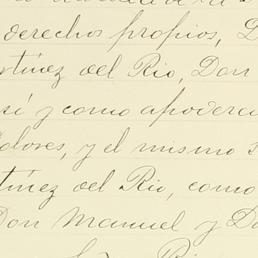 derechos propios, D
rtínez del Rio, Don
sí y como apodera
Dolores, y el mismo
tínez del Rio, como
Don Manuel y D